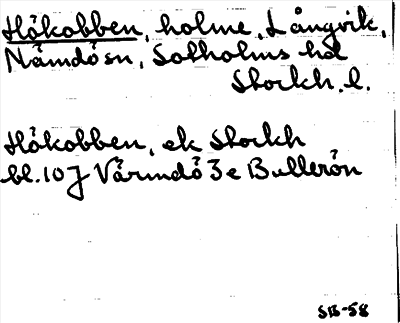 Hökobben, holme, Långvik,
Nämdö sn, Sotholms hd
Stockh. l.
Hökobben, ek Stockh
bl. 10 J Värmdö 3 e Bullerön
SB-58